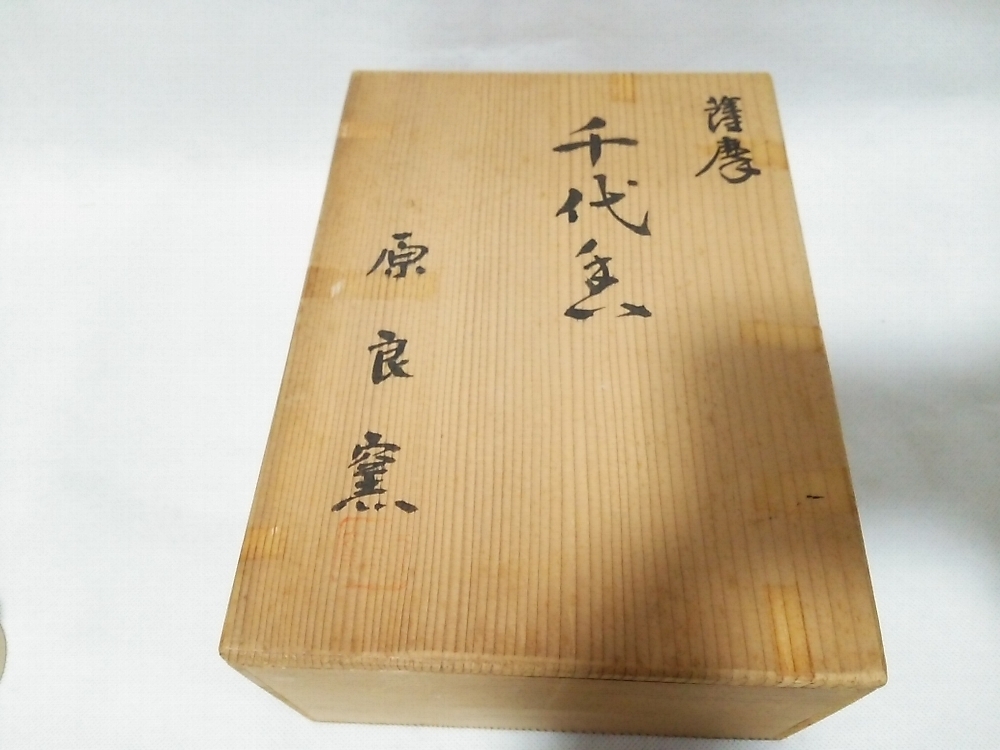 薩摩
千代香
原良窯